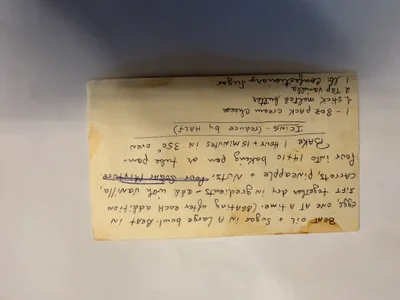 Beat oil + sugar in a large bowl. Beat in
eggs, one at a time. (Beating after each addition
Sift together dry ingredients - add with vanilla,
carrots, pineapple + nuts. Pour sugar mixture
Pour into 14x10 baking pan or tube pan.
Bake 1 hour 15 minutes in 350° oven
Icing - (reduce by half)
1 - 8oz pack cream cheese
1 stick melted butter
2 tsp vanilla
1 lb confectionary sugar